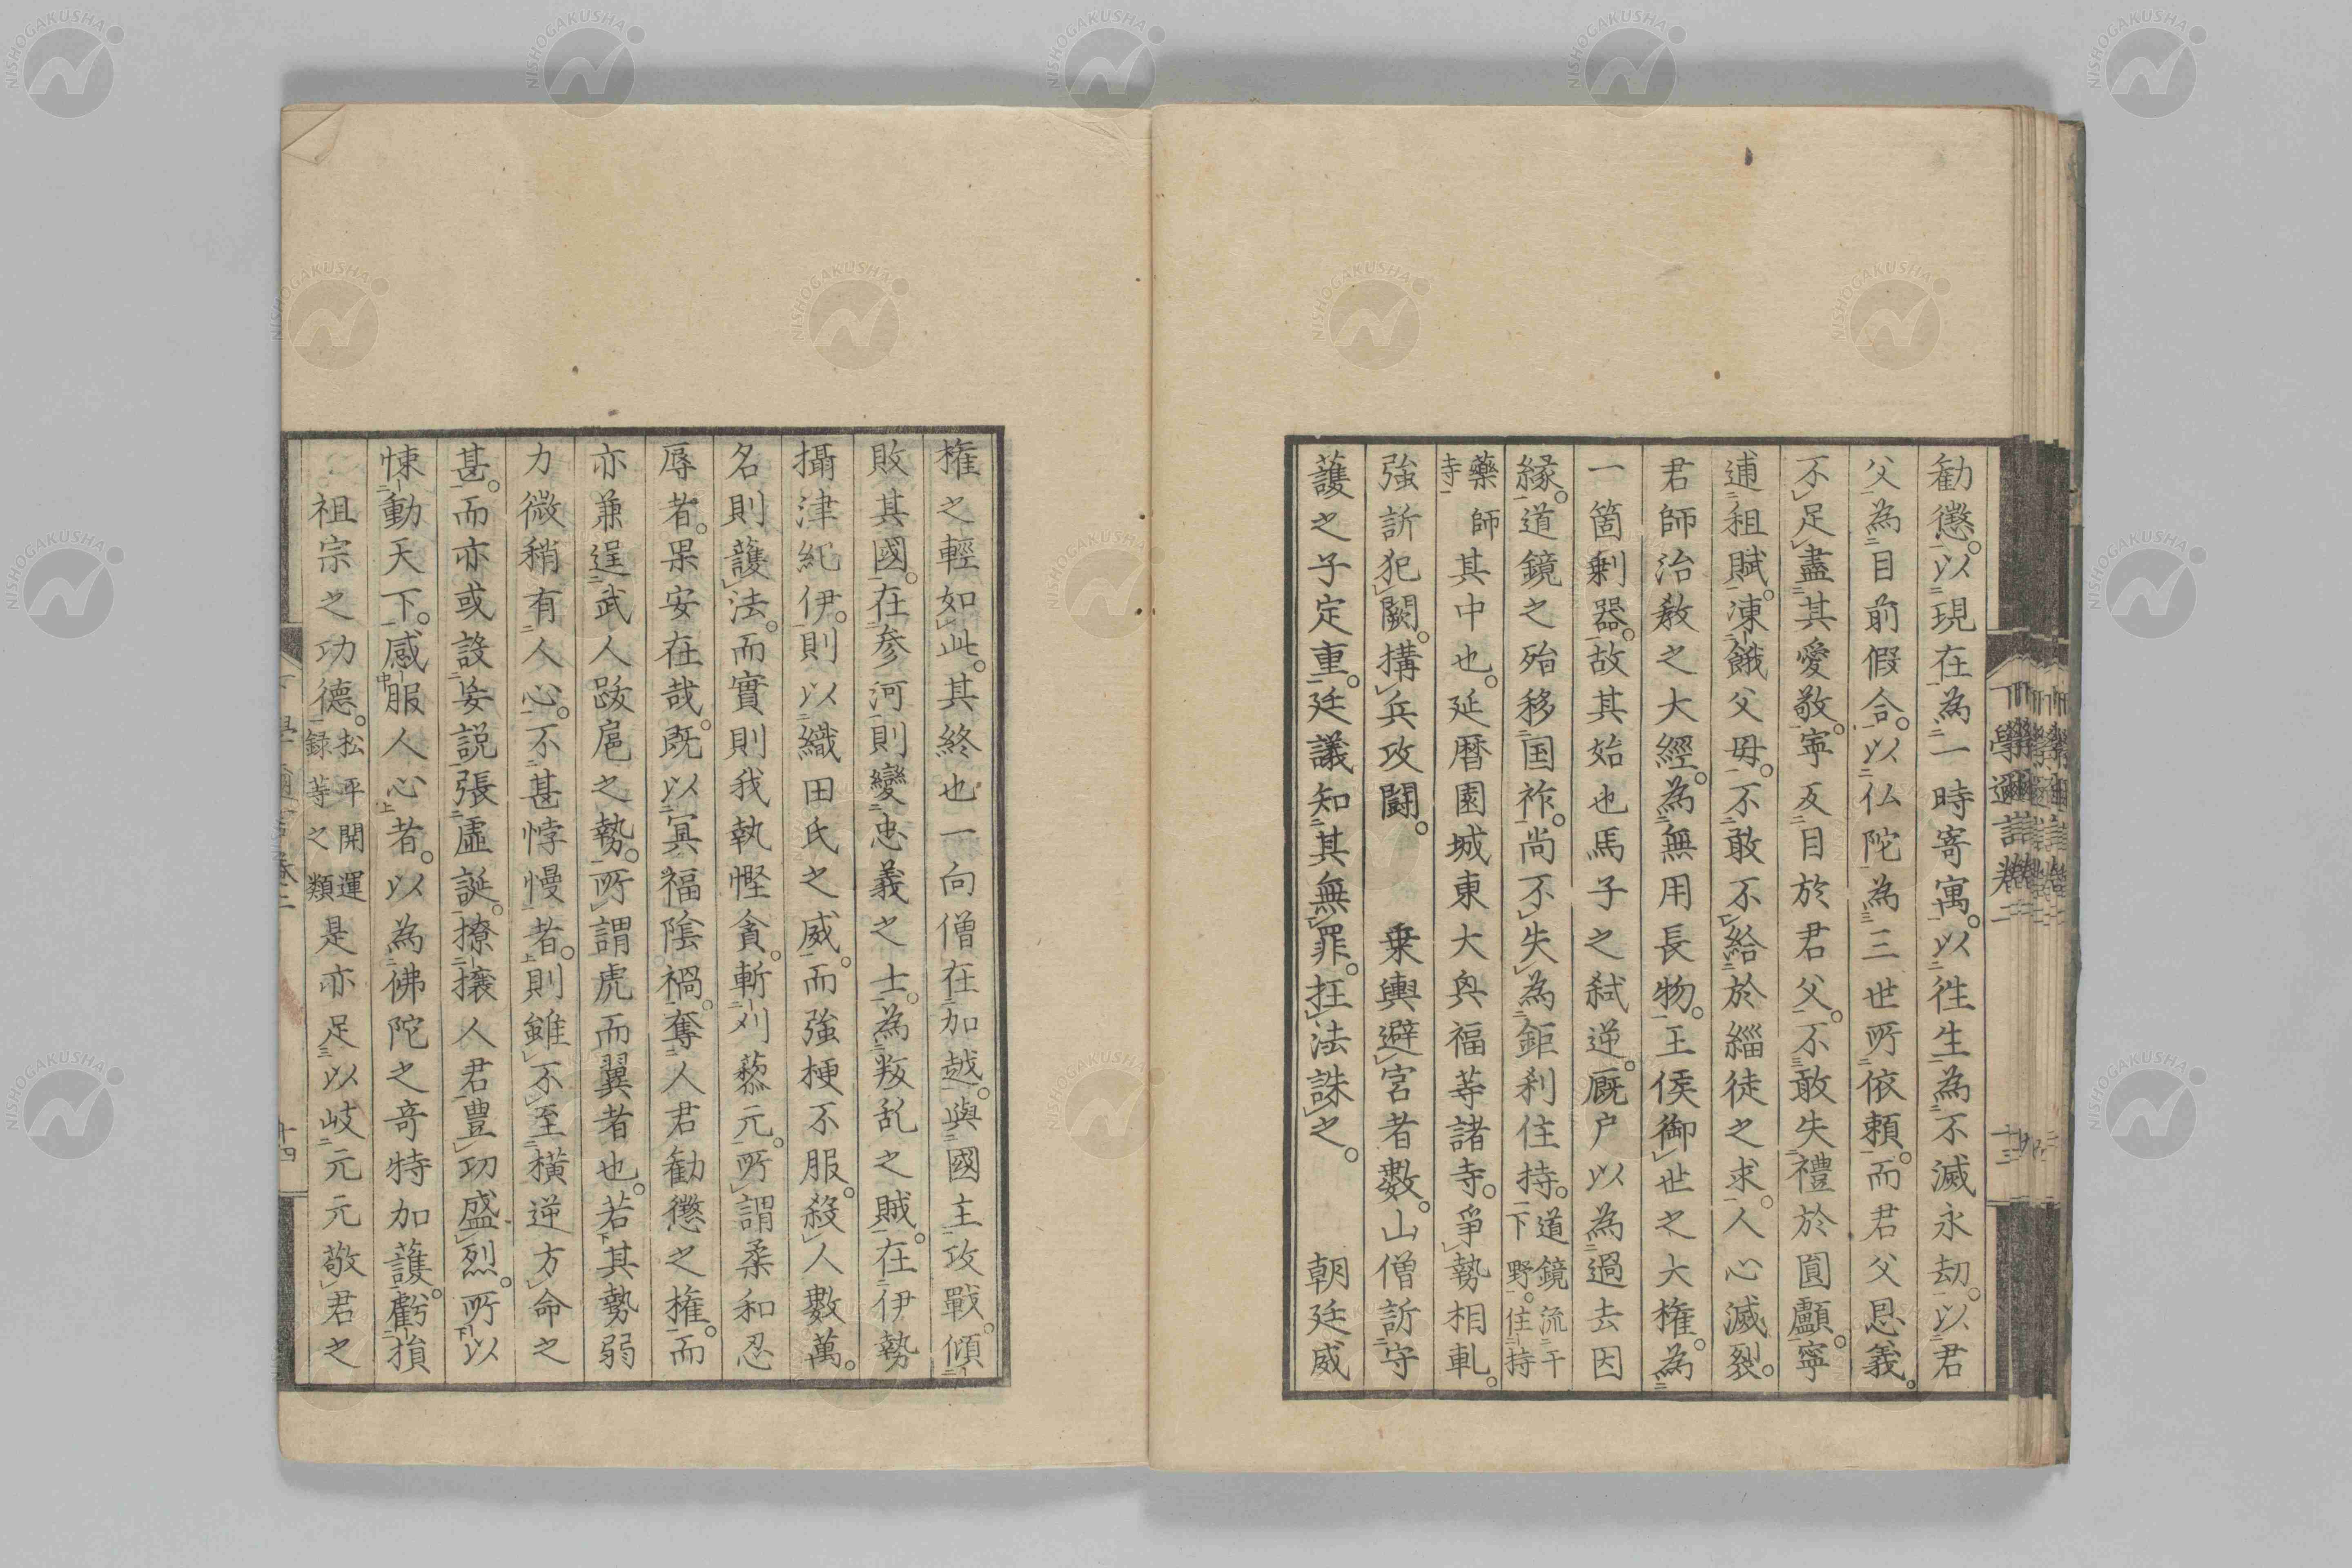 勧懲。以現在為一時寄寓。以徃生為不滅永劫。以君
父為目前假合。以仏陀為三世所依頼。而君父恩義。
不足盡其愛敬。寕反目於君父。不敢失禮於圓顱。寧
逋租賦。凍餓父母。不敢不給於緇徒之求。人心滅裂。
君師治教之大經。為無用長物。王侯御世之大権。為
一箇剰器。故其始也馬子之弑逆。厩戸以為過去因
縁。道鏡之殆移国祚。尚不失為鉅刹住持。道鏡流于下野。住持
藥師寺其中也。延暦園城東大與福等諸寺。爭勢相軋。
強訴犯闕。搆兵攻鬪。乗輿避宮者數。山僧訴守
護之子定重。廷議知其無罪。抂法誅之。朝廷威
権之輕如此。其終也一向僧在加越。與國主攻戰。傾
敗其國。在参河則變忠義之士。為叛乱之賊。在伊勢
攝津紀伊。則以織田氏之威。而強梗不服。殺人數萬。
名則護法。而實則我執慳貪。斬刈藜元。所謂柔和忍
辱者。果安在哉。既以冥福陰禍。奪人君勧懲之権。而
亦兼逞武人跋扈之勢。所謂虎而翼者也。若其勢弱
力微稍有人心。不甚悖慢者。則雖不至橫逆方命之
甚。而亦或設妄説張虚誕。撩攘人君豊功盛烈。所以
悚動天下。感服人心者。以為佛陀之竒特加護。虧損
祖宗之功德。松平開運録等之類是亦足以岐元元敬君之
下學邇言卷二
十三
十四
NISHOGAKUSHA